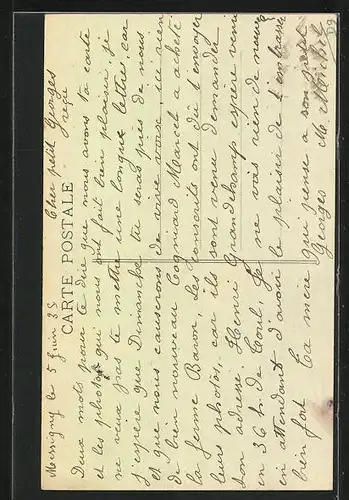 CARTE POSTALE
Messigny le 5 Juin 35
Cher petit Georges
Deux mots pour te dire que nous avons reçu ta carte
et les photos qui nous ont fait bien plaisir, je
ne veux pas te mettre une longue lettre, car
j'espère que Dimanche tu seras près de nous
et que nous causerons de vive voix, ici rien
de bien nouveau Cogniard Marcel a acheté
la ferme Baron, les conscrits ont dû t'envoyer
leurs photos, car ils sont venu demander
ton adresse, Henri Grandchamp espère venir
en 36 h. de Toul, Je ne vois rien de nouveau
en attendant d'avoir le plaisir de t'embrasser
bien fort Ta mère qui pense a son petit
Georges M.